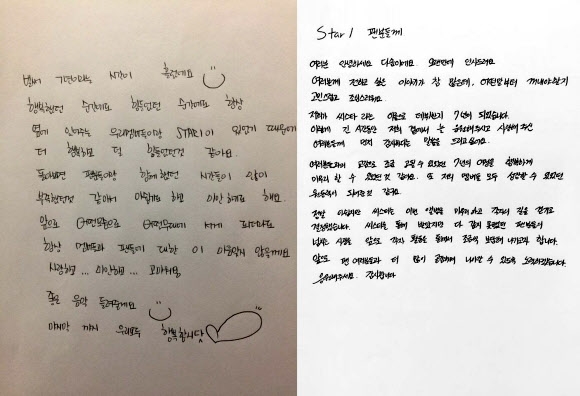 벌써 7년이라는 시간이 흘렀네요
행복했던 순간에도 힘들었던 순간에도 항상
옆에 있어주는 우리멤버들이랑 STAR1이 있었기 때문에
더 행복하고 덜 힘들었던것 같아요.
돌아보면 팬분들이랑 함께했던 시간들이 많이
부족했던것 같아서 아쉽기도 하고 미안하기도 해요.
앞으로 어떤모습으로 어떤무대에 서게 되더라도
항상 멤버들과 팬들에 대한 이 마음잊지 않을게요
사랑하고 ... 미안하고 ... 고마워요.
좋은 음악 들려줄게요
마지막 까지 우리모두 행복합시다
Star1 팬분들께
여러분 안녕하세요 다솜이에요. 오랜만에 인사드려요
여러분께 전하고 싶은 이야기가 참 많은데, 어떤말부터 꺼내야할지
고민스럽고 조심스러워요.
저희가 씨스타 라는 이름으로 데뷔한지 7년이 되었습니다.
이렇게 긴 시간동안 저희 곁에서 늘 응원해주시고 사랑해주신
여러분께 먼저 감사하다는 말씀을 드리고싶어요.
여러분 덕분에 고맙고 조금 더 할 수 있었던 7년의 여정을 행복하게
마무리 할 수 있었던 것 같아요. 또 저희 멤버들 모두 성장할 수 있었던
원동력이 되어준것 같구요.
정말 아쉽지만 씨스타는 이번 앨범을 마무리하고 각자의 길을 걷기로
결정했습니다. 씨스타를 통해 받았지만 다 갚지 못했던 팬분들의
넘치는 사랑은 앞으로 각자 활동을 통해서 조금씩 보답해 나가려고 합니다.
앞으로 팬 여러분들과 더 많이 공유하며 나아갈 수 있도록 노력하겠습니다.
응원해주세요. 감사합니다